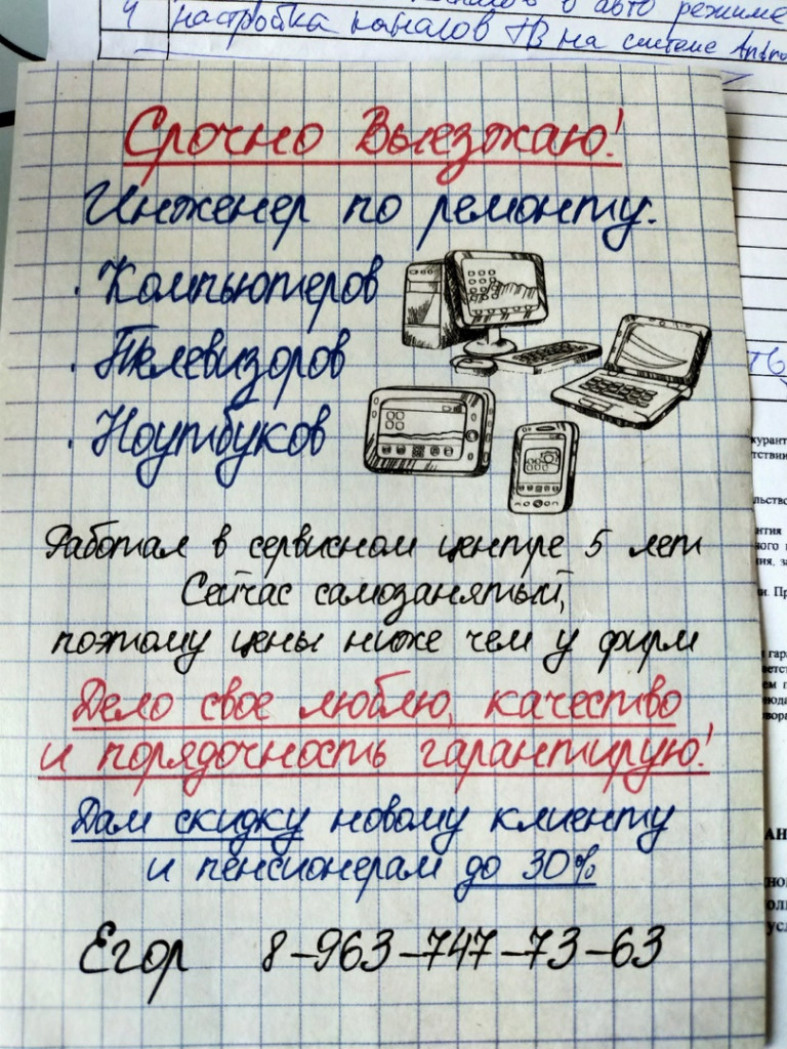 4 настройка каналов ТВ на системе Andro
в авто режиме
Срочно Выезжаю!
Инженер по ремонту.
· Компьютеров
· Телевизоров
· Ноутбуков
Работал в сервисном центре 5 лет
Сейчас самозанятый,
поэтому цены ниже чем у фирм
Дело свое люблю, качество
и порядочность гарантирую!
Дам скидку новому клиенту
и пенсионерам до 30%
Егор 8-963-747-73-63